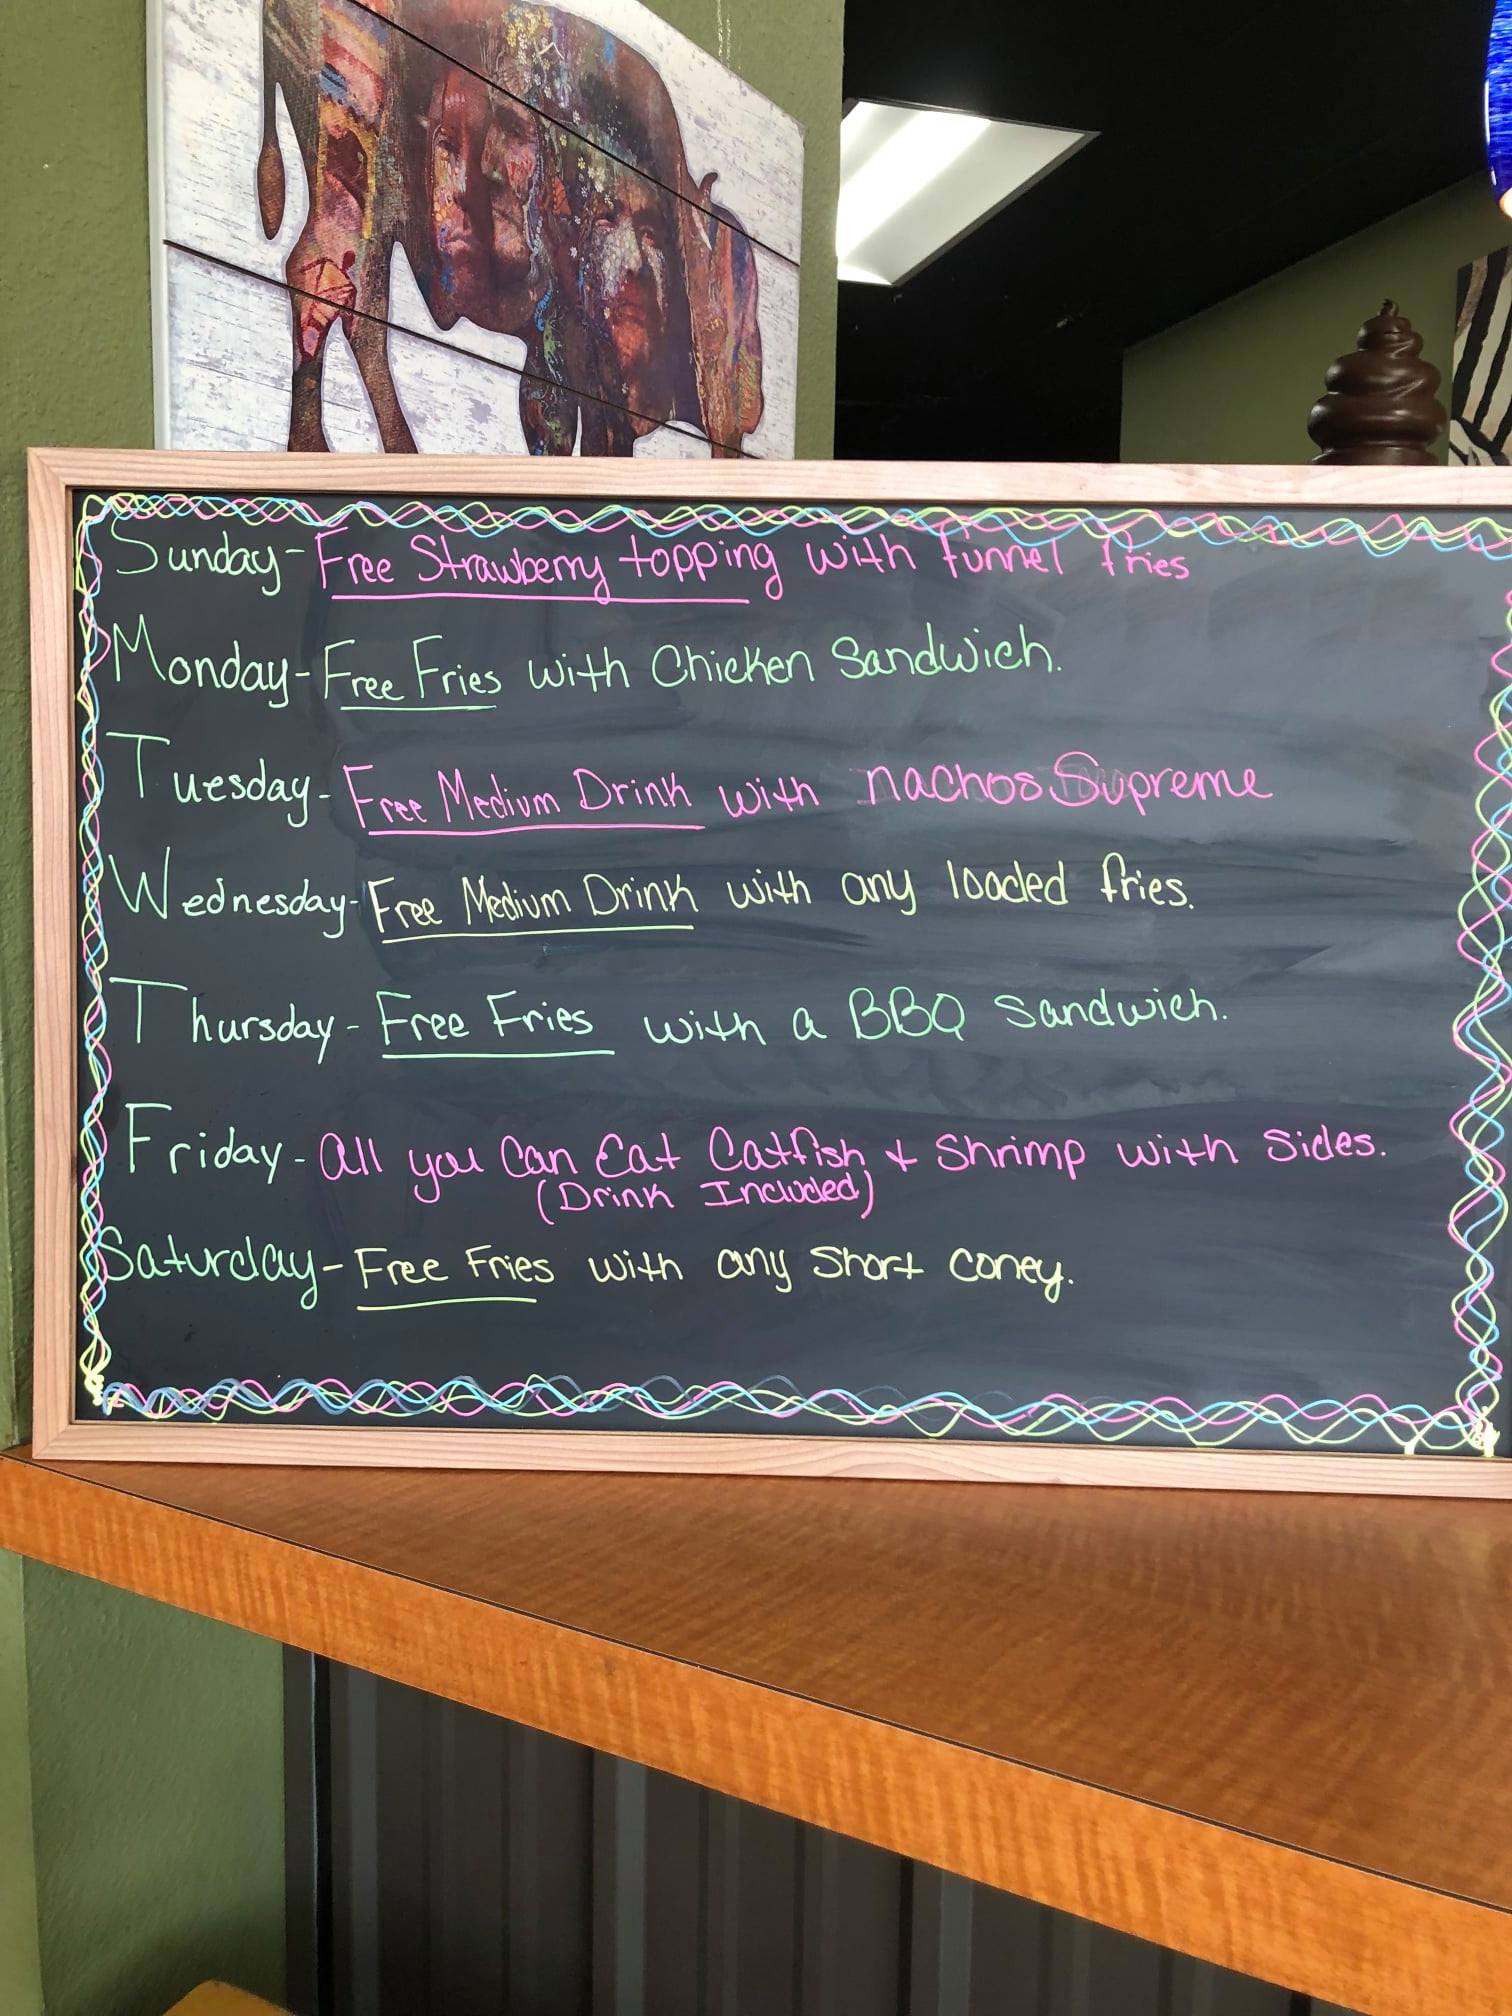 Sunday - Free Strawberry topping with funnel fries
Monday - Free Fries with Chicken Sandwich.
Tuesday - Free Medium Drink with nachos Supreme
Wednesday - Free Medium Drink with any loaded fries.
Thursday - Free Fries with a BBQ Sandwich.
Friday - All you Can Eat Catfish & Shrimp with Sides.
(Drink Included)
Saturday - Free Fries with any Short Coney.